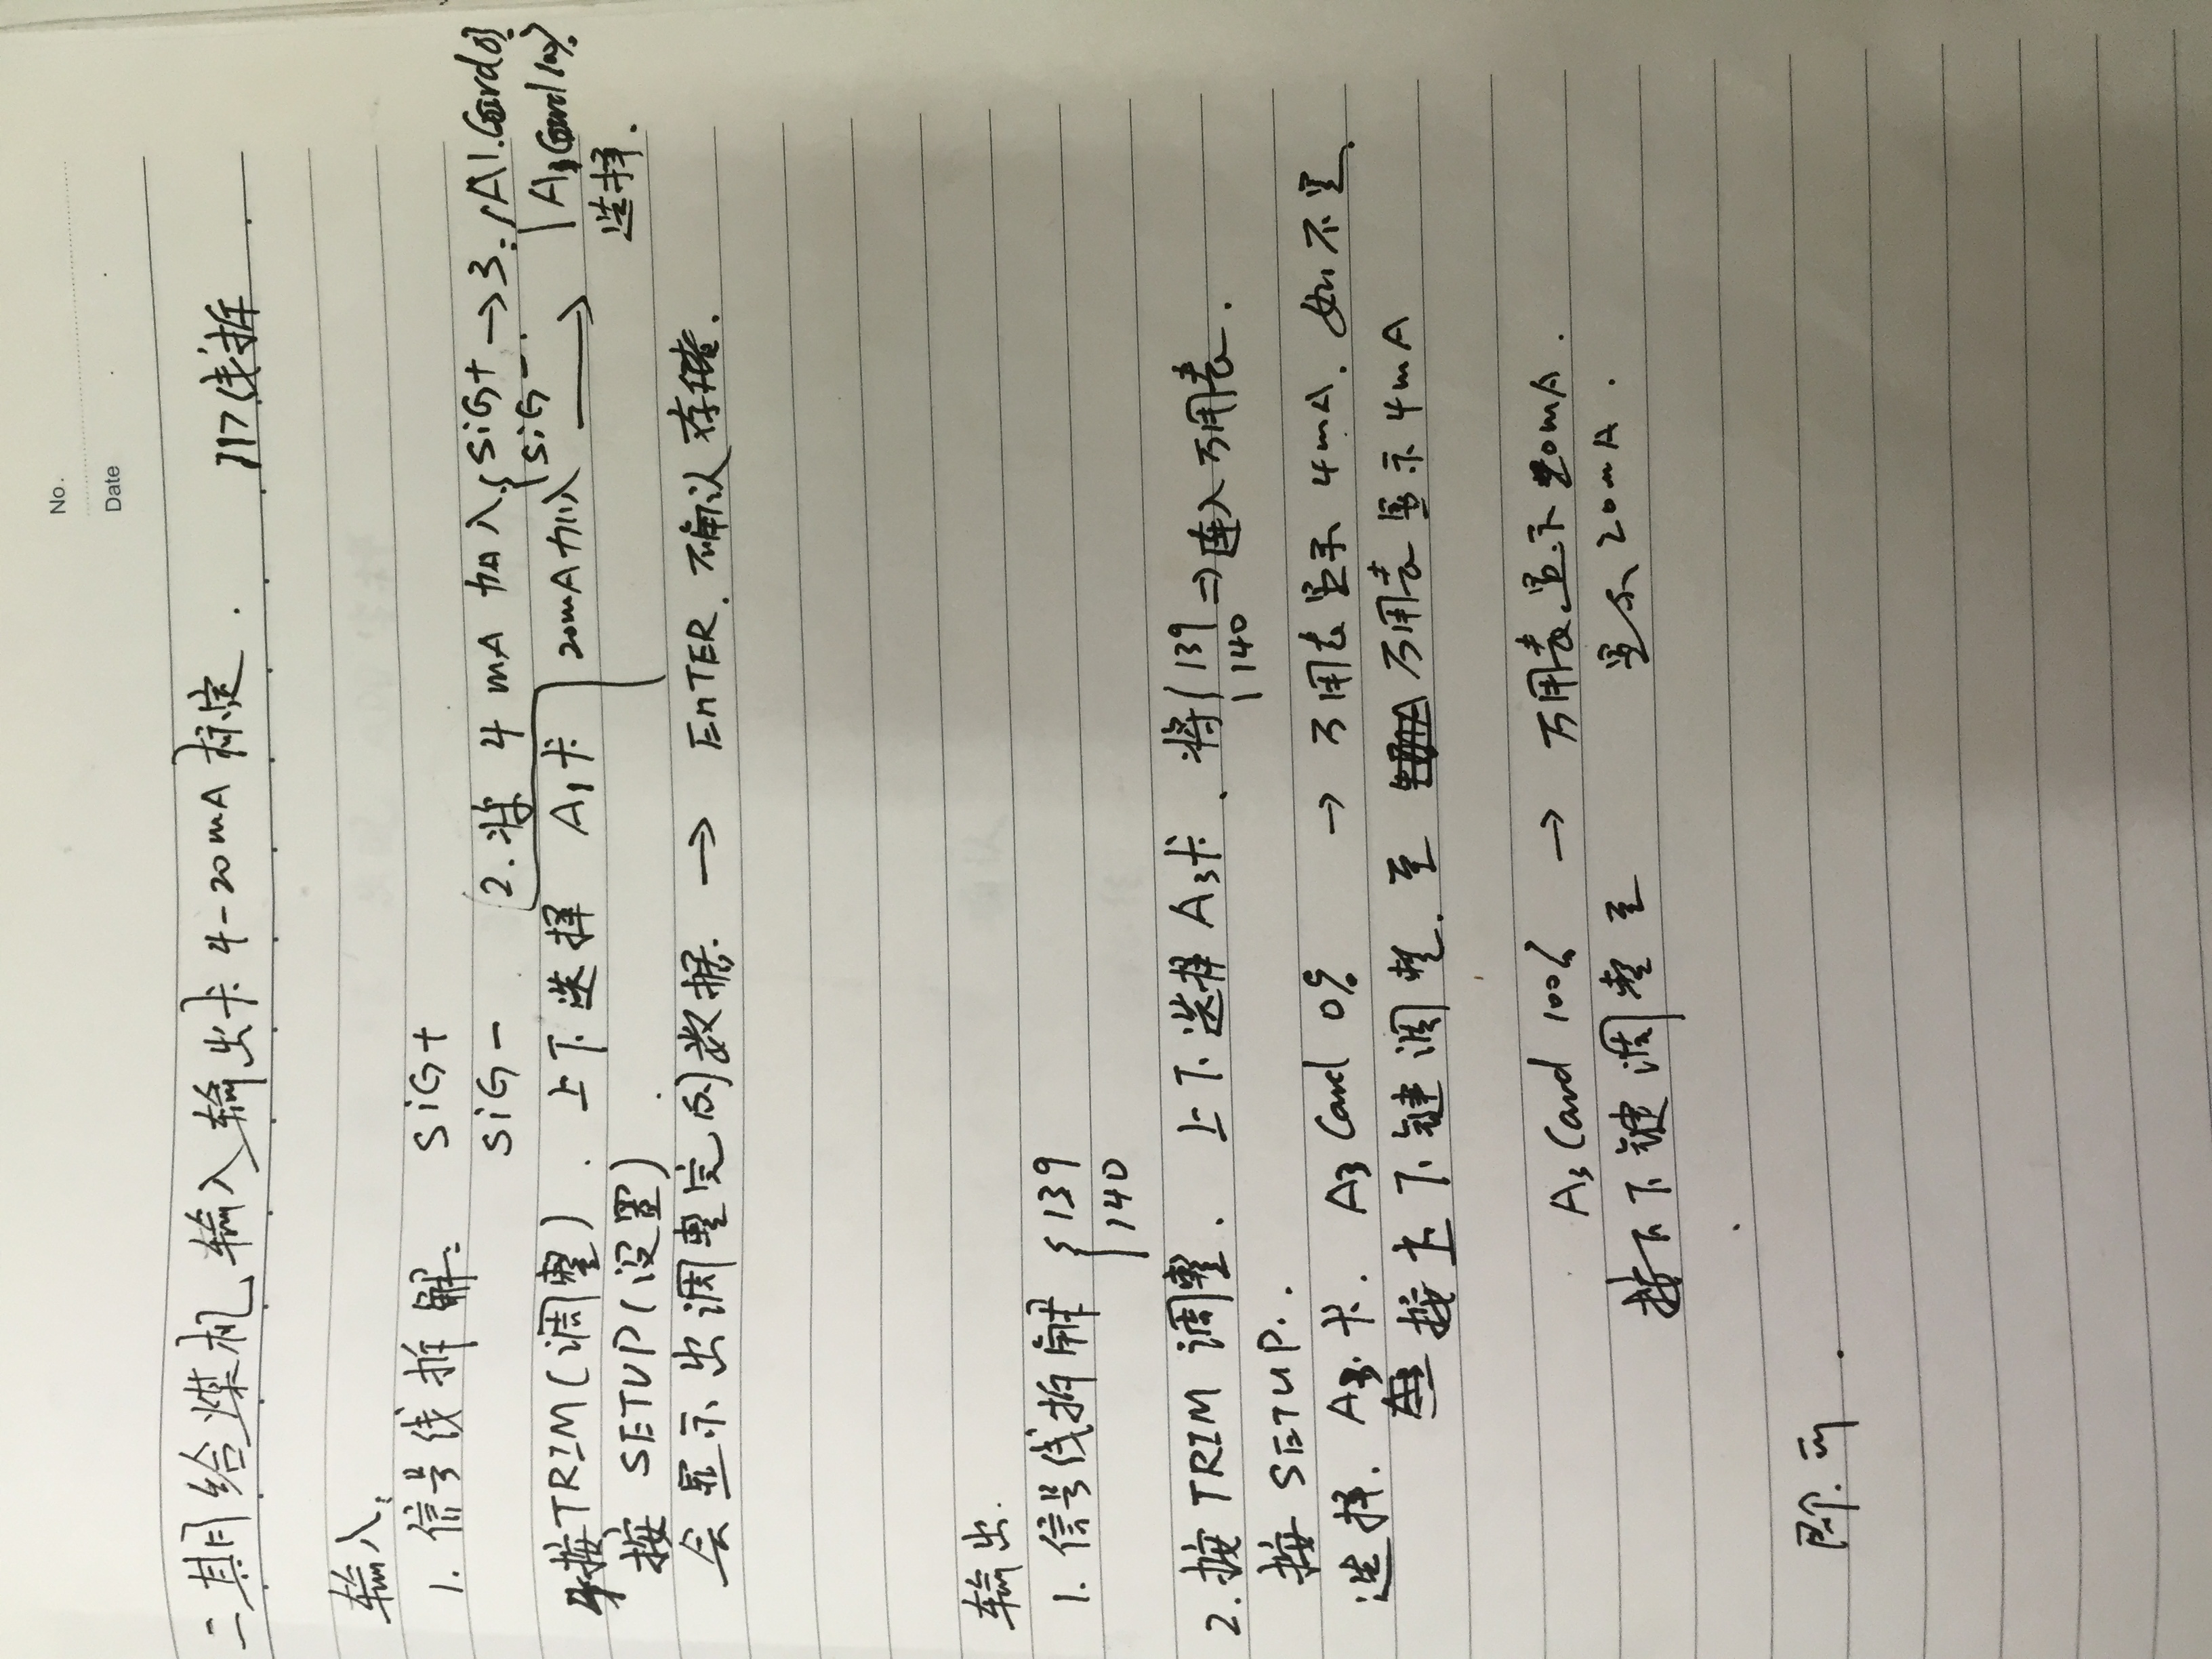 No.
Date
二期给煤机输入输出卡4-20mA标定. 117线拆
输入:
1. 信号线拆解: SiG+
SiG- 2.将 4 mA 加入{SiG+ →3. {A1.Card 0%
SiG-
按TRIM(调整). 上下选择 A1卡 20mA加入 → A1 Card 100%
按 SETUP(设置). 选择.
会显示出调整完的数据. → EnTER. 确认存储.
输出.
1. 信号线拆解 {139
140
2.按TRIM 调整. 上下选择A3卡. 将{139 ⇒连入万用表.
140
按 SETUP..
选择. A3.卡. A3 Card 0% → 万用表显示 4mA. 如不是.
按上下键调整. 至 万用表显示4mA
A3 Card 100% → 万用表显示20mA.
按下键调整至 显示20mA.
即可.